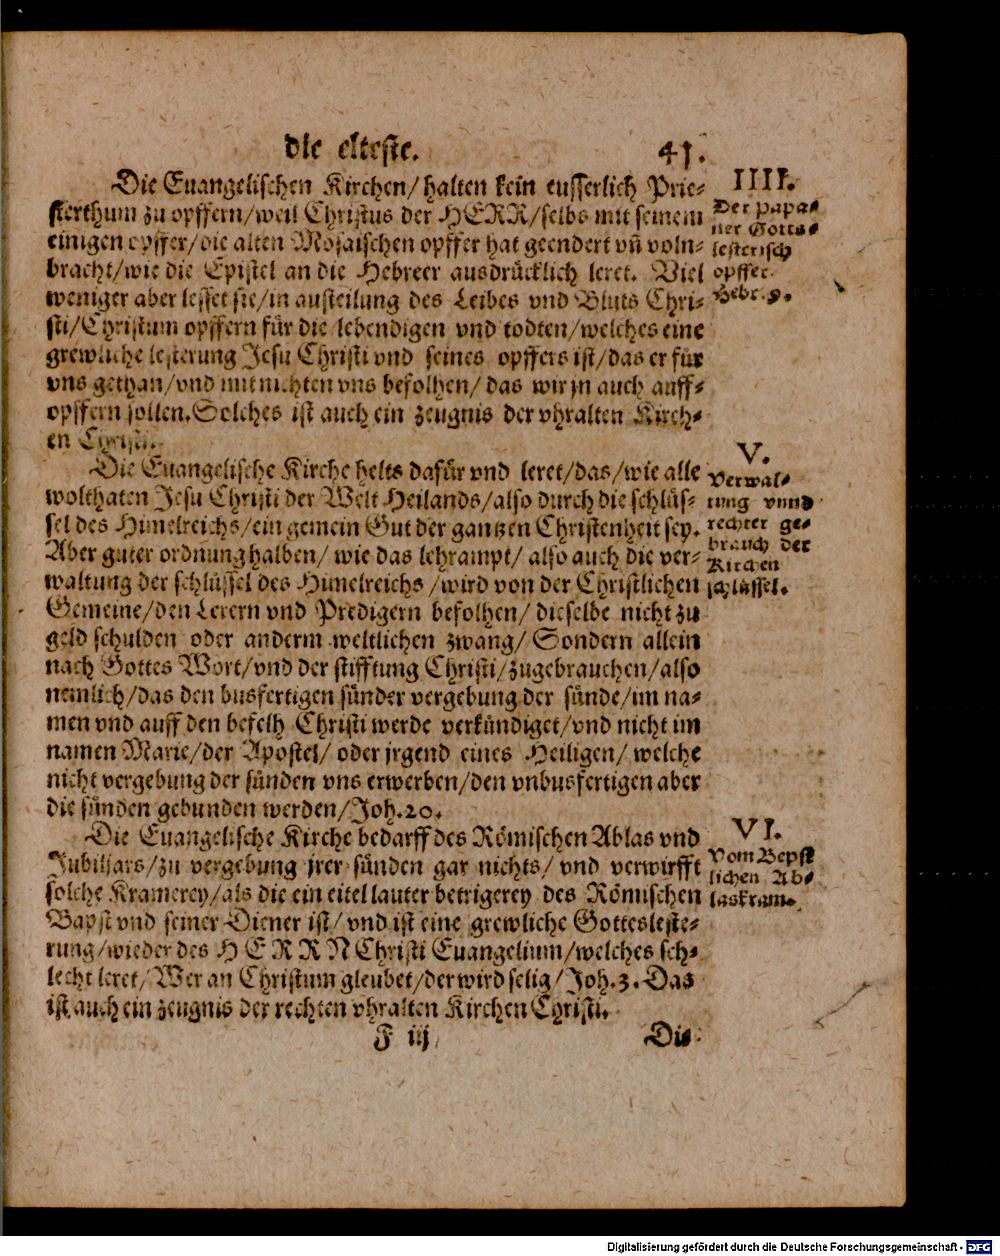 die elteste.
41.
Die Euangelischen Kirchen/halten kein eusserlich Prie-
sterthum zu opffern/weil Christus der HERR/selbs mit seinem
einigen opffer/die alten Mosaischen opffer hat geendert vñ voln-
bracht/wie die Epistel an die Hebreer ausdrücklich leret. Viel
weniger aber lesset sie/in austeilung des Leibes vnd Bluts Chri-
sti/Christum opffern für die lebendigen vnd todten/welches eine
grewliche lesterung Jesu Christi vnd seines opffers ist/das er für
vns gethan/vnd mit nichten vns befolhen/das wir jn auch auff-
opffern sollen. Solches ist auch ein zeugnis der vhralten Kirch-
en Christi.
IIII.
Der Papa-
ner Gotts-
lesterisch
opffer.
Hebr. 9.
Die Euangelische Kirche helts dafür vnd leret/das/wie alle
wolthaten Jesu Christi der Welt Heilands/also durch die schlüs-
sel des Himelreichs/ein gemein Gut der gantzen Christenheit sey.
Aber guter ordnung halben/wie das lehrampt/also auch die ver-
waltung der schlüssel des Himelreichs/wird von der Christlichen
Gemeine/den Lerern vnd Predigern befolhen/dieselbe nicht zu
geld schulden oder anderm weltlichen zwang/Sondern allein
nach Gottes Wort/vnd der stifftung Christi/zugebrauchen/also
nemlich/das den busfertigen sünder vergebung der sünde/im na-
men vnd auff den befelh Christi werde verkündiget/vnd nicht im
namen Marie/der Apostel/oder jrgend eines Heiligen/welche
nicht vergebung der sünden vns erwerben/den vnbusfertigen aber
die sünden gebunden werden/Joh.20.
V.
Verwal-
tung vnnd
rechter ge-
brauch der
Kirchen
schlüssel.
Die Euangelische Kirche bedarff des Römischen Ablas vnd
Jubiljars/zu vergebung jrer sünden gar nichts/vnd verwirfft
solche Kramerey/als die ein eitel lauter betrigerey des Römischen
Bapst vnd seiner Diener ist/vnd ist eine grewliche Gottesleste-
rung/wieder des HERRN Christi Euangelium/welches sch-
lecht leret/Wer an Christum gleubet/der wird selig/Joh.3. Das
ist auch ein zeugnis der rechten vhralten Kirchen Christi.
VI.
Vom Bepst
lichen Ab-
laskram.
F iij
Die
Digitalisierung gefördert durch die Deutsche Forschungsgemeinschaft - DFG